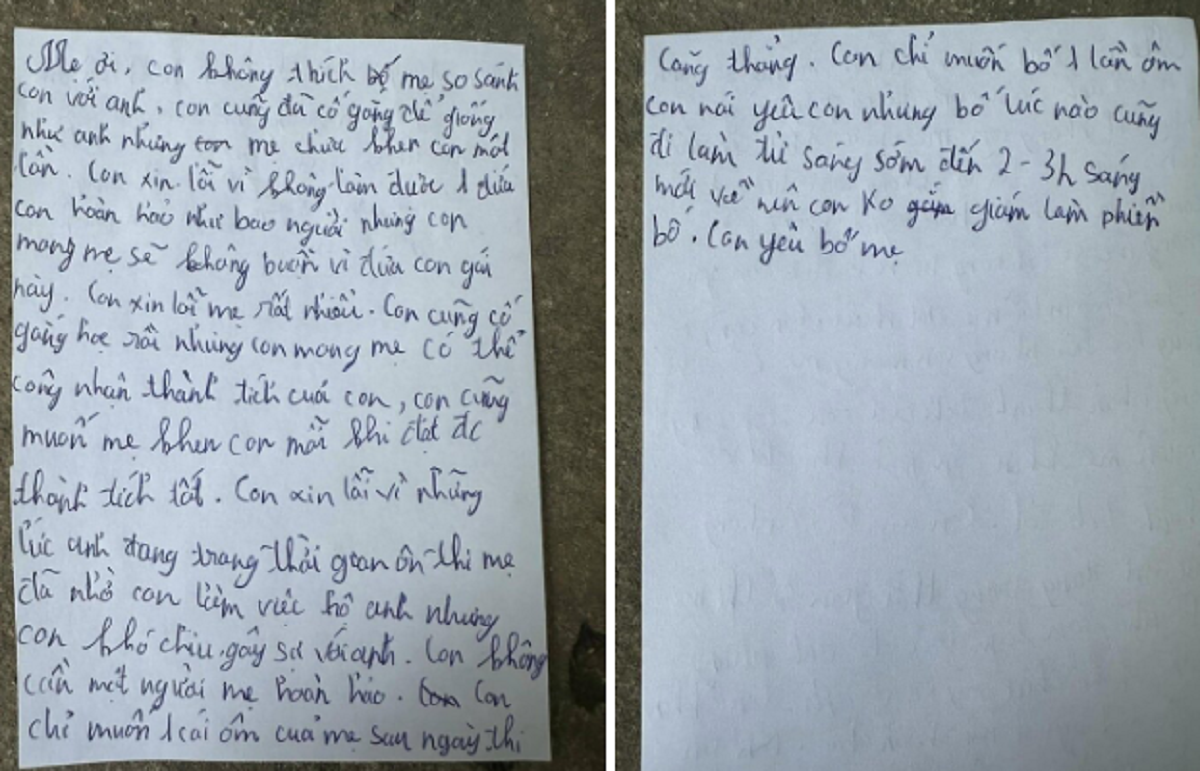 Mẹ ơi, con không thích bố mẹ so sánh
con với anh, con cũng đã cố gắng để giống
như anh nhưng mẹ chưa khen con một
lần. Con xin lỗi vì không làm được 1 đứa
con hoàn hảo như bao người nhưng con
mong mẹ sẽ không buồn vì đứa con gái
này. Con xin lỗi mẹ rất nhiều. Con cũng cố
gắng học rồi nhưng con mong mẹ có thể
công nhận thành tích cuả con, con cũng
muốn mẹ khen con mỗi khi đạt đc
thành tích tốt. Con xin lỗi vì những
lúc anh đang trong thời gian ôn thi mẹ
đã nhờ con làm việc hộ anh nhưng
con khó chịu gây sự với anh. Con không
cần một người mẹ hoàn hảo. Con
chỉ muốn 1 cái ôm cuả mẹ sau ngày thi
căng thẳng. Con chỉ muốn bố 1 lần ôm
con nói yêu con nhưng bố lúc nào cũng
đi làm từ sáng sớm đến 2-3h sáng
mới về nên con ko giám làm phiền
bố. Con yêu bố mẹ